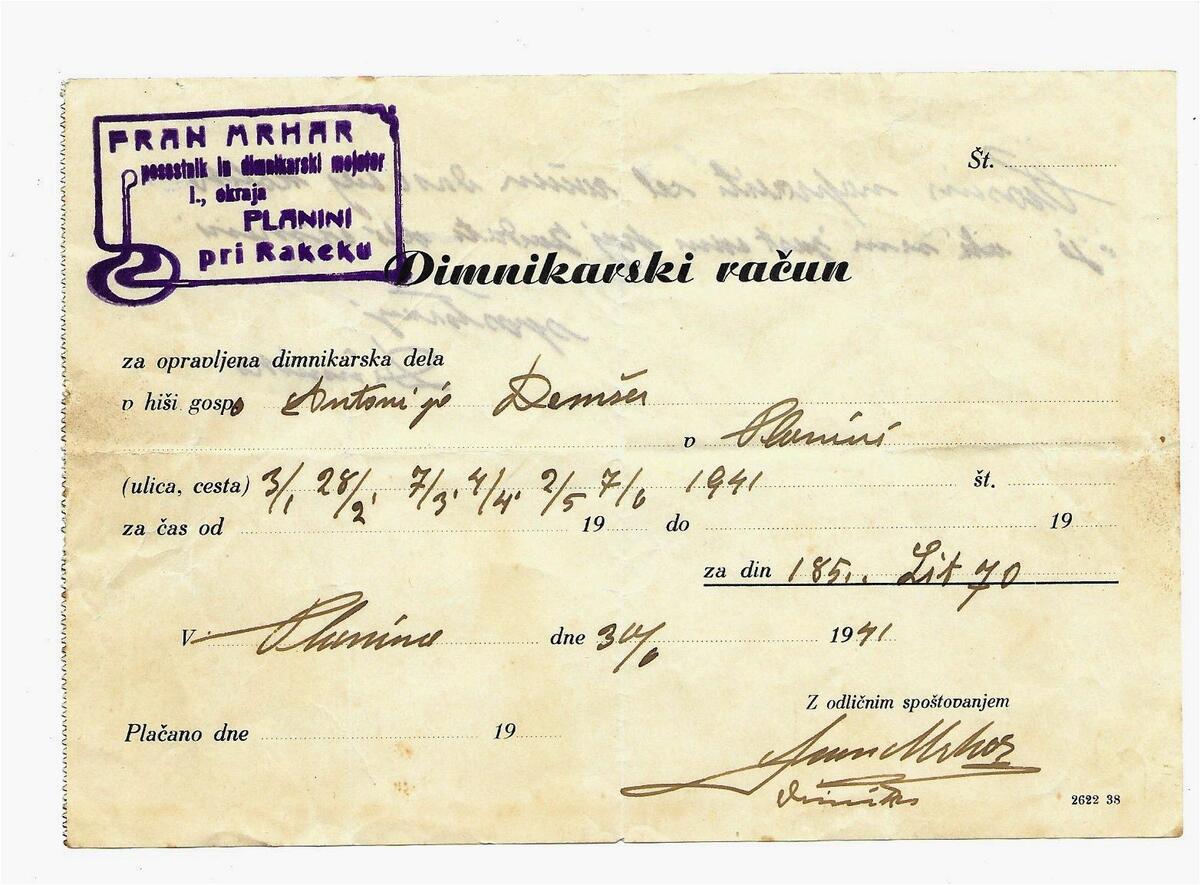 FRAN MRHAR
posestnik in dimnikarski mojster
I., okraja
PLANINI
pri Rakeku
Št.
Dimnikarski račun
za opravljena dimnikarska dela
v hiši gosp. Antonije Demšer
v Planini
(ulica, cesta) 3/1 28/2. 7/3. 4/4. 2/5 7/6 1941 št.
za čas od 19 do 19
za din 185.. Lit 70
V Planina dne 30/6 1941
Z odličnim spoštovanjem
Plačano dne 19
Mrhar
2622 38